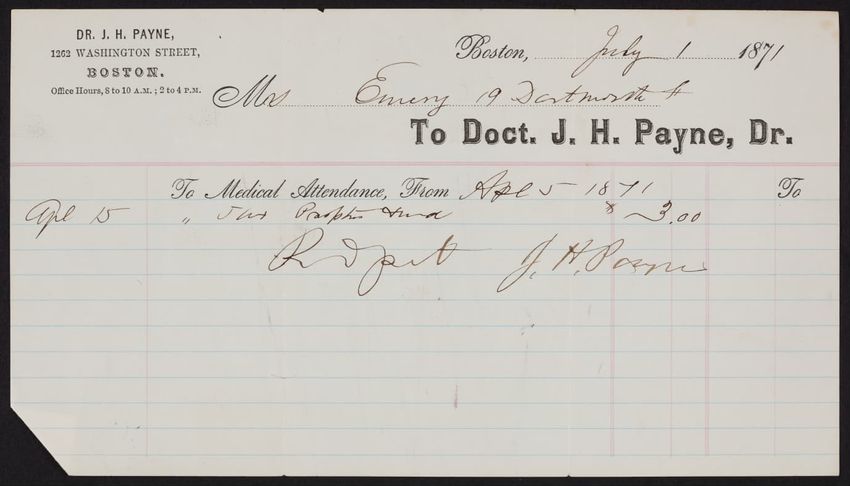 DR. J. H. PAYNE,
1262 WASHINGTON STREET,
BOSTON.
Office Hours, 8 to 10 A.M.; 2 to 4 P.M.
Boston, July 1 1871
Mrs Emery 19 Dartmouth St
To Doct. J. H. Payne, Dr.
To Medical Attendance, From Apl 5 1871 To
Apl 15 " 3.00
Rd pt J. H. Payne